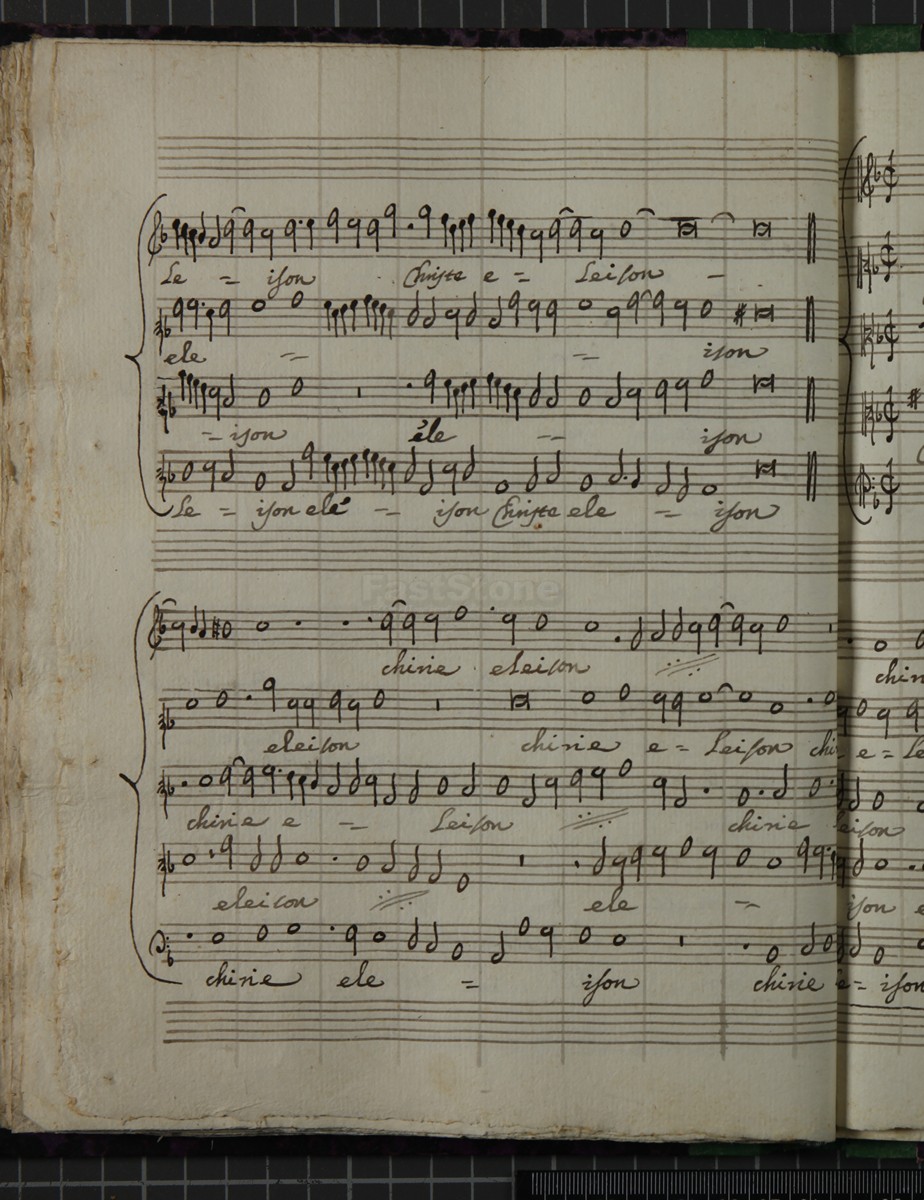 Le = ison Christe e = Leison -
ele = = ison
= ison ele = ison
Le = ison ele = ison Christe ele = ison
FastStone
chirie eleison
chirie
eleison chirie e = Leison chi e = Le
chirie e = Leison chirie eison
eleison ele = ison e
chirie ele = ison chirie e = ison